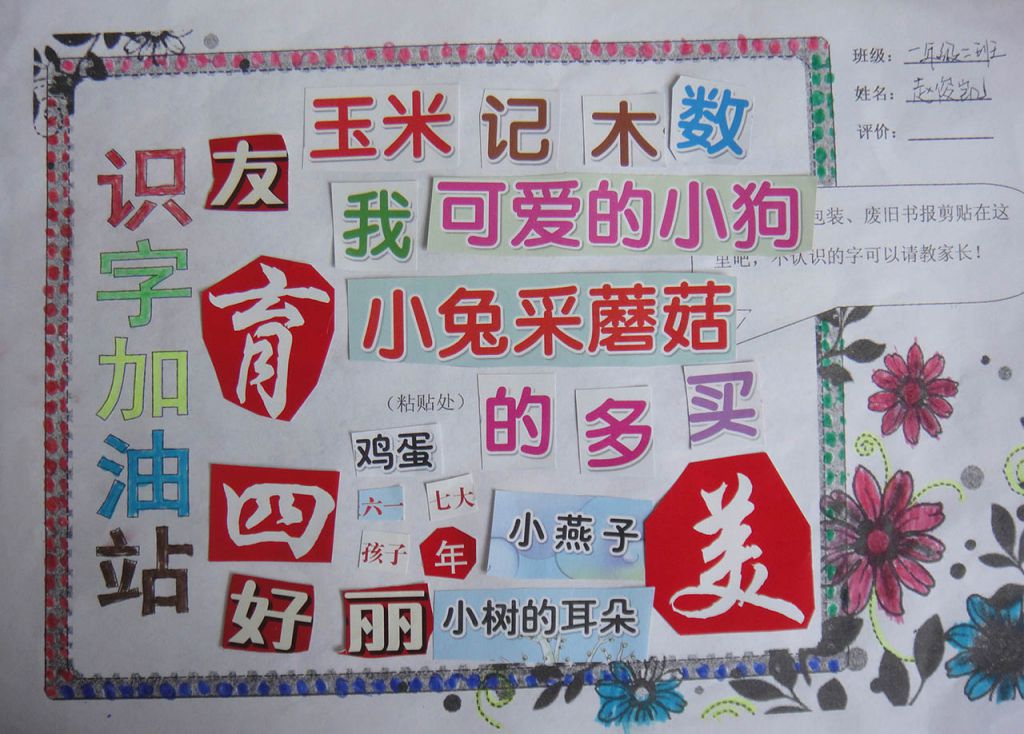 班级：一年级二班
姓名：赵俊凯
评价：
识字加油站
友
玉米
记
木
数
我
可爱的小狗
包装、废旧书报剪贴在这
里吧，不认识的字可以请教家长！
育
小兔采蘑菇
（粘贴处）
的
多
买
鸡蛋
四
六一
七大
小燕子
美
孩子
年
好
丽
小树的耳朵